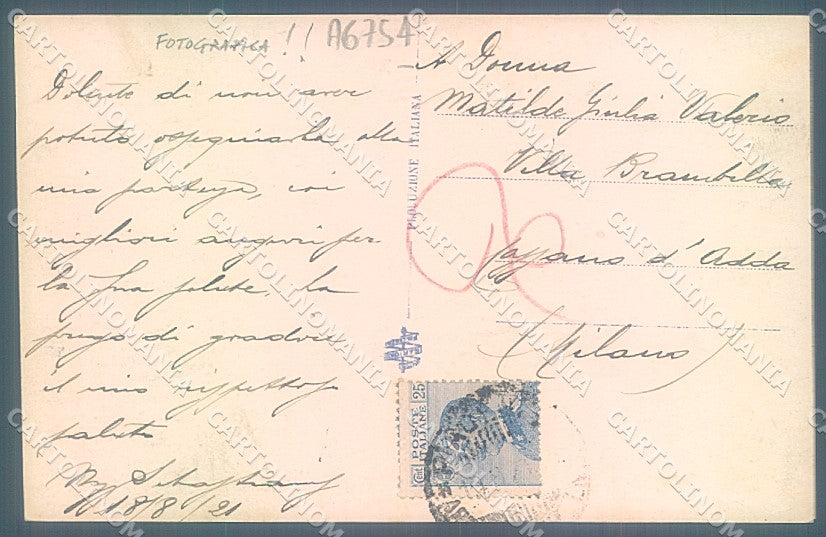 FOTOGRAFICA !! A6754
Dolente di non aver
potuto ossequiarla alla
mia partenza, coi
migliori auguri per
la Sua salute, La
prego di gradire
il mio rispettoso
saluto
18/8/21
PRODUZIONE ITALIANA
A Donna
Matilde Giulia Valerio
Villa Brambilla
Cassano d'Adda
(Milano)
POSTE
ITALIANE
Cent. 25
CARTOLINOMANIA